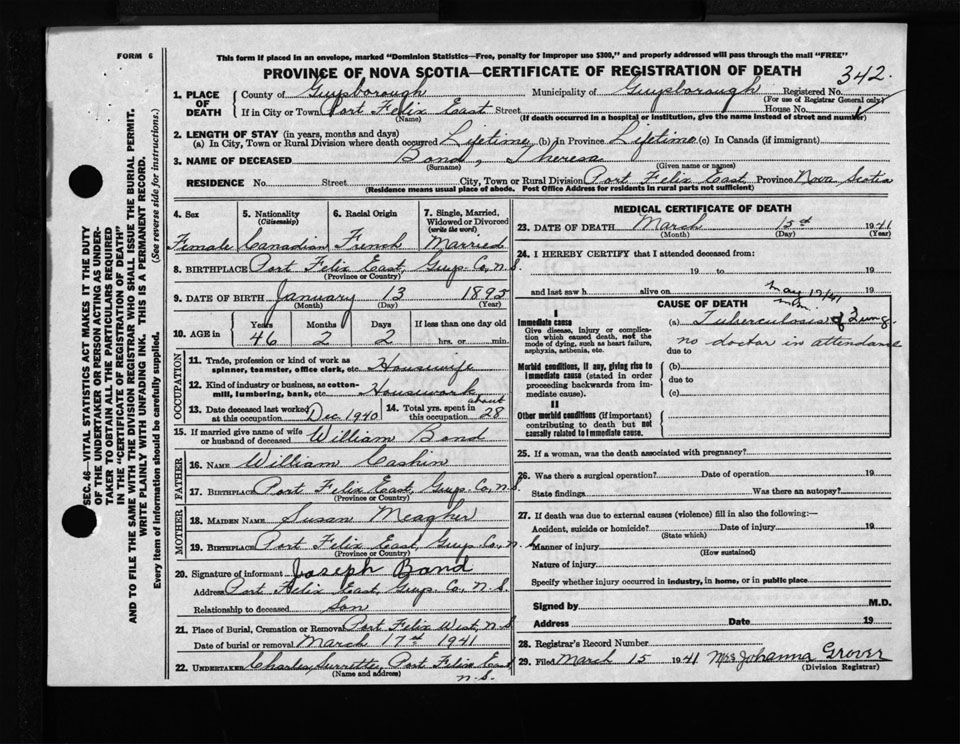 FORM 6
This form if placed in an envelope, marked "Dominion Statistics—Free, penalty for improper use $300," and properly addressed will pass through the mail "FREE"
PROVINCE OF NOVA SCOTIA—CERTIFICATE OF REGISTRATION OF DEATH
342.
1. PLACE OF DEATH
County of Guysborough Municipality of Guysborough Registered No.
(For use of Registrar General only)
If in City or Town Port Felix East Street House No.
(Name) (If death occurred in a hospital or institution, give the name instead of street and number)
2. LENGTH OF STAY (in years, months and days)
(a) In City, Town or Rural Division where death occurred Lifetime (b) In Province Lifetime (c) In Canada (if immigrant)
3. NAME OF DECEASED Bond, Theresa
(Surname) (Given name or names)
RESIDENCE No. Street City, Town or Rural Division Port Felix East, Province Nova Scotia
(Residence means usual place of abode. Post Office Address for residents in rural parts not sufficient)
4. Sex 5. Nationality (Citizenship) 6. Racial Origin 7. Single, Married, Widowed or Divorced (write the word)
Female Canadian French Married
8. BIRTHPLACE Port Felix East, Guys. Co, N.S.
(Province or Country)
9. DATE OF BIRTH January 13 1895
(Month) (Day) (Year)
10. AGE in Years Months Days If less than one day old
46 2 2 hrs. or min.
OCCUPATION
11. Trade, profession or kind of work as spinner, teamster, office clerk, etc. Housewife
12. Kind of industry or business, as cotton-mill, lumbering, bank, etc. Housework
13. Date deceased last worked at this occupation Dec. 1940 14. Total yrs. spent in this occupation about 28
15. If married give name of wife or husband of deceased William Bond
FATHER
16. NAME William Cashin
17. BIRTHPLACE Port Felix East, Guys. Co, N.S.
(Province or Country)
MOTHER
18. MAIDEN NAME Susan Meagher
19. BIRTHPLACE Port Felix East, Guys. Co, N.S.
(Province or Country)
20. Signature of informant Joseph Bond
Address Port Felix East, Guys. Co. N.S.
Relationship to deceased Son
21. Place of Burial, Cremation or Removal Port Felix West, N.S
Date of burial or removal March 17th 1941
22. UNDERTAKER Charles Port Felix East
(Name and address) N.S.
MEDICAL CERTIFICATE OF DEATH
23. DATE OF DEATH March 15th 1941
(Month) (Day) (Year)
24. I HEREBY CERTIFY that I attended deceased from:
19 to 19
and last saw h alive on 19
CAUSE OF DEATH
I
Immediate cause
Give disease, injury or complication which caused death, not the mode of dying, such as heart failure, asphyxia, asthenia, etc.
(a) Tuberculosis of Lung.
no doctor in attendance
due to
Morbid conditions, if any, giving rise to immediate cause (stated in order proceeding backwards from immediate cause).
(b)
due to
(c)
II
Other morbid conditions (if important) contributing to death but not causally related to immediate cause.
25. If a woman, was the death associated with pregnancy?
26. Was there a surgical operation? Date of operation 19
State findings Was there an autopsy?
27. If death was due to external causes (violence) fill in also the following:—
Accident, suicide or homicide? Date of injury 19
(State which)
Manner of injury
(How sustained)
Nature of injury
Specify whether injury occurred in industry, in home, or in public place
Signed by M.D.
Address Date 19
28. Registrar's Record Number
29. Filed March 15 1941 Mrs Johanna Grover
(Division Registrar)
SEC. 46—VITAL STATISTICS ACT MAKES IT THE DUTY
OF THE UNDERTAKER OR PERSON ACTING AS UNDER-
TAKER TO OBTAIN ALL THE PARTICULARS REQUIRED
IN THE "CERTIFICATE OF REGISTRATION OF DEATH"
AND TO FILE THE SAME WITH THE DIVISION REGISTRAR WHO SHALL ISSUE THE BURIAL PERMIT.
WRITE PLAINLY WITH UNFADING INK. THIS IS A PERMANENT RECORD.
Every item of information should be carefully supplied. (See reverse side for instructions.)